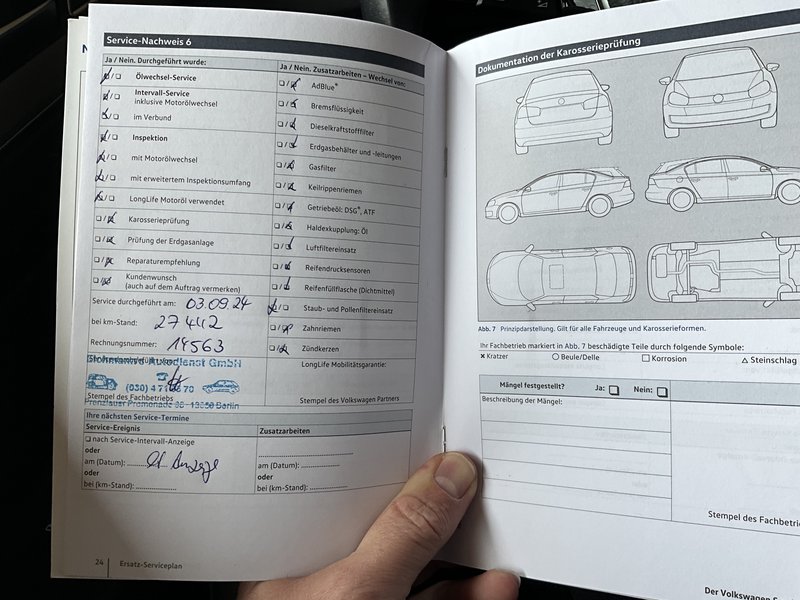 Service-Nachweis 6
Ja / Nein. Durchgeführt wurde:
Ölwechsel-Service
Intervall-Service
inklusive Motorölwechsel
im Verbund
Inspektion
mit Motorölwechsel
mit erweitertem Inspektionsumfang
LongLife Motoröl verwendet
Karosserieprüfung
Prüfung der Erdgasanlage
Reparaturempfehlung
Kundenwunsch
(auch auf dem Auftrag vermerken)
Service durchgeführt am: 03.09.24
bei km-Stand: 27442
Rechnungsnummer: 14563
Autodienst GmbH
(030) 4 71
Stempel des Fachbetriebs
Prenzlauer Promenade
Berlin
Ja / Nein. Zusatzarbeiten – Wechsel von:
AdBlue®
Bremsflüssigkeit
Dieselkraftstofffilter
Erdgasbehälter und -leitungen
Gasfilter
Keilrippenriemen
Getriebeöl: DSG®, ATF
Haldexkupplung: Öl
Luftfiltereinsatz
Reifendrucksensoren
Reifenfüllflasche (Dichtmittel)
Staub- und Pollenfiltereinsatz
Zahnriemen
Zündkerzen
LongLife Mobilitätsgarantie:
Stempel des Volkswagen Partners
Ihre nächsten Service-Termine
Service-Ereignis
nach Service-Intervall-Anzeige
oder
am (Datum):
oder
bei (km-Stand):
Zusatzarbeiten
am (Datum):
oder
bei (km-Stand):
24 Ersatz-Serviceplan
Dokumentation der Karosserieprüfung
Abb. 7 Prinzipdarstellung. Gilt für alle Fahrzeuge und Karosserieformen.
Ihr Fachbetrieb markiert in Abb. 7 beschädigte Teile durch folgende Symbole:
× Kratzer ○ Beule/Delle □ Korrosion △ Steinschlag
Mängel festgestellt? Ja: Nein:
Beschreibung der Mängel:
Stempel des Fachbetrie
Der Volkswagen